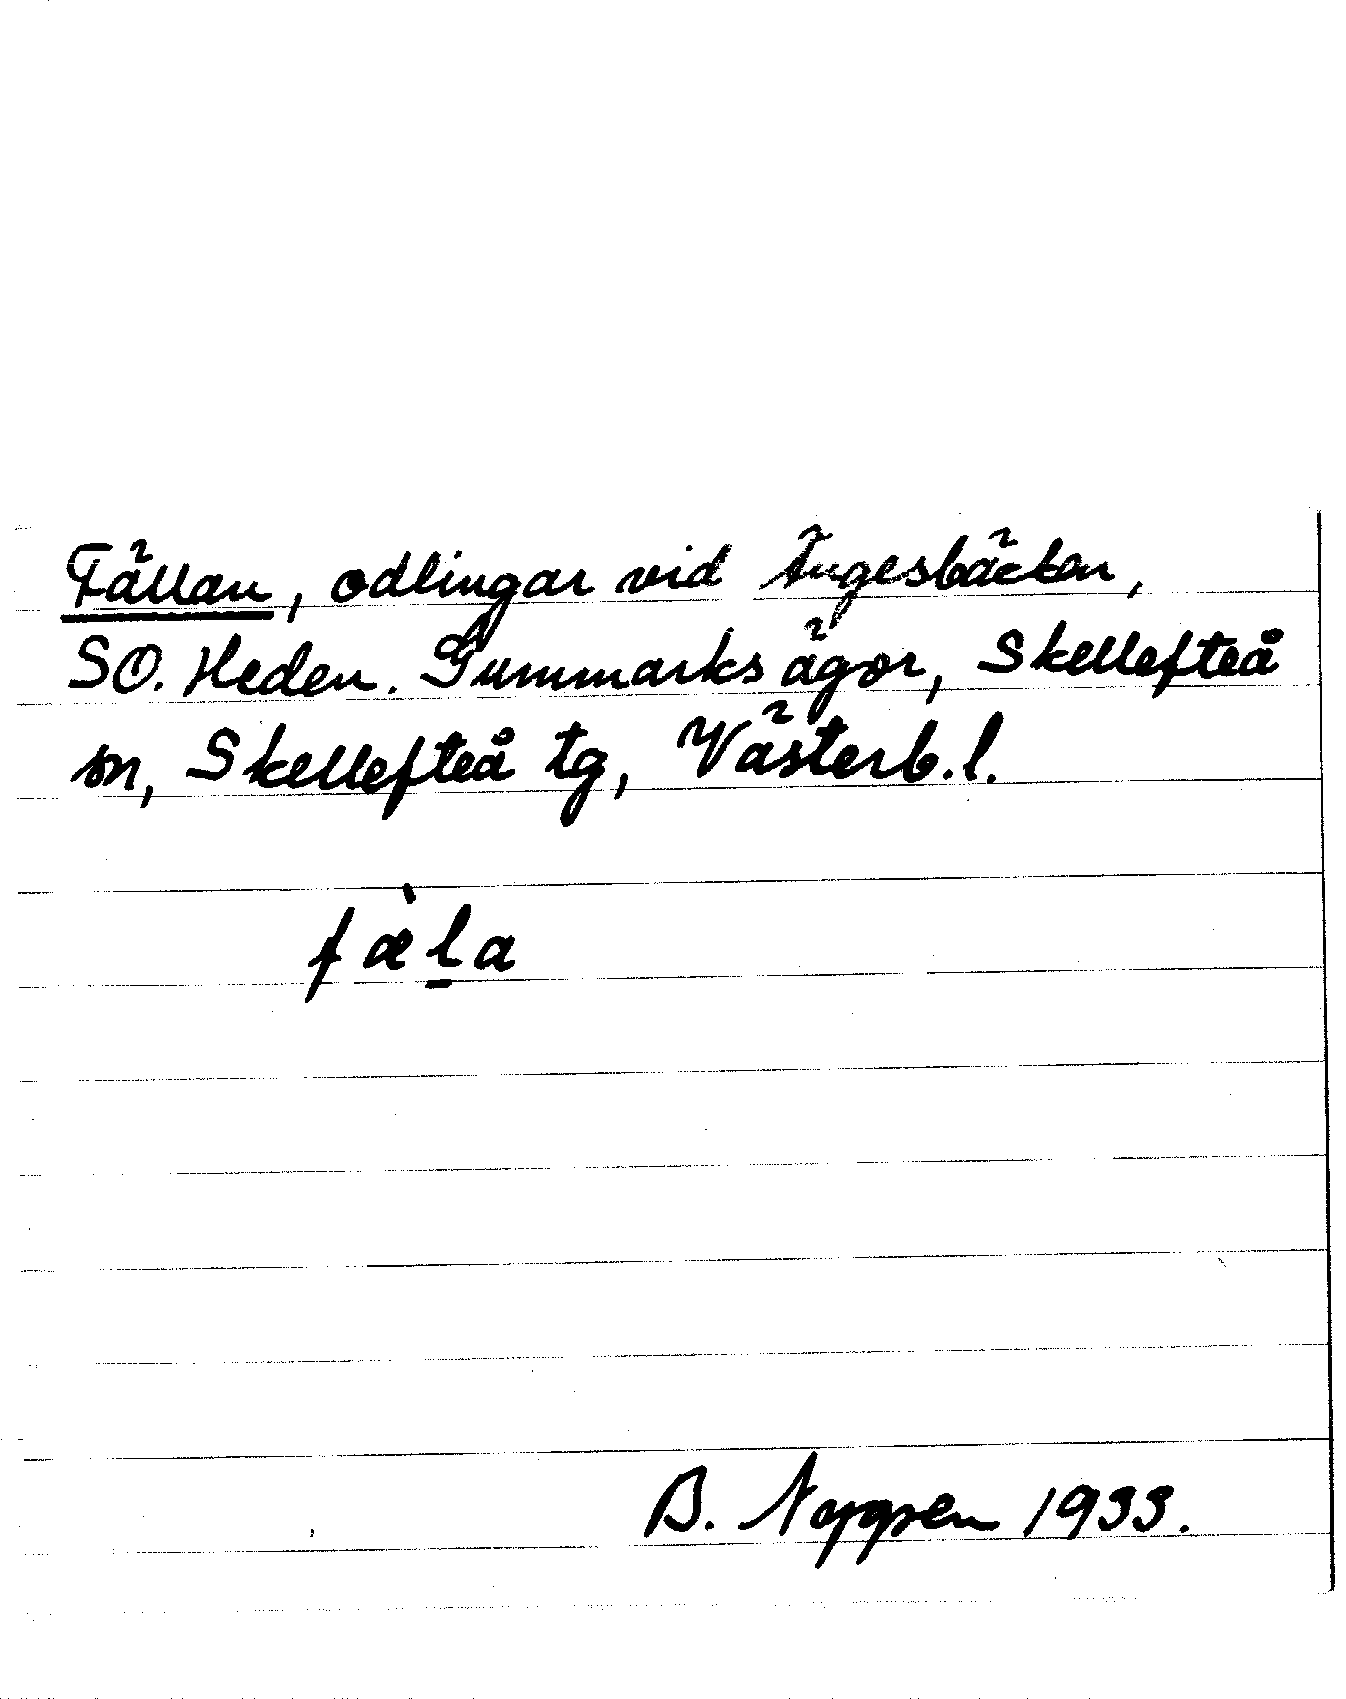 Fällan, odlingar vid Ängesbäcken,
SO. Heden. Gummarks ägor, Skellefteå
sn, Skellefteå tg, Västerb. l.
fæ̀l̲a
B. 1933.